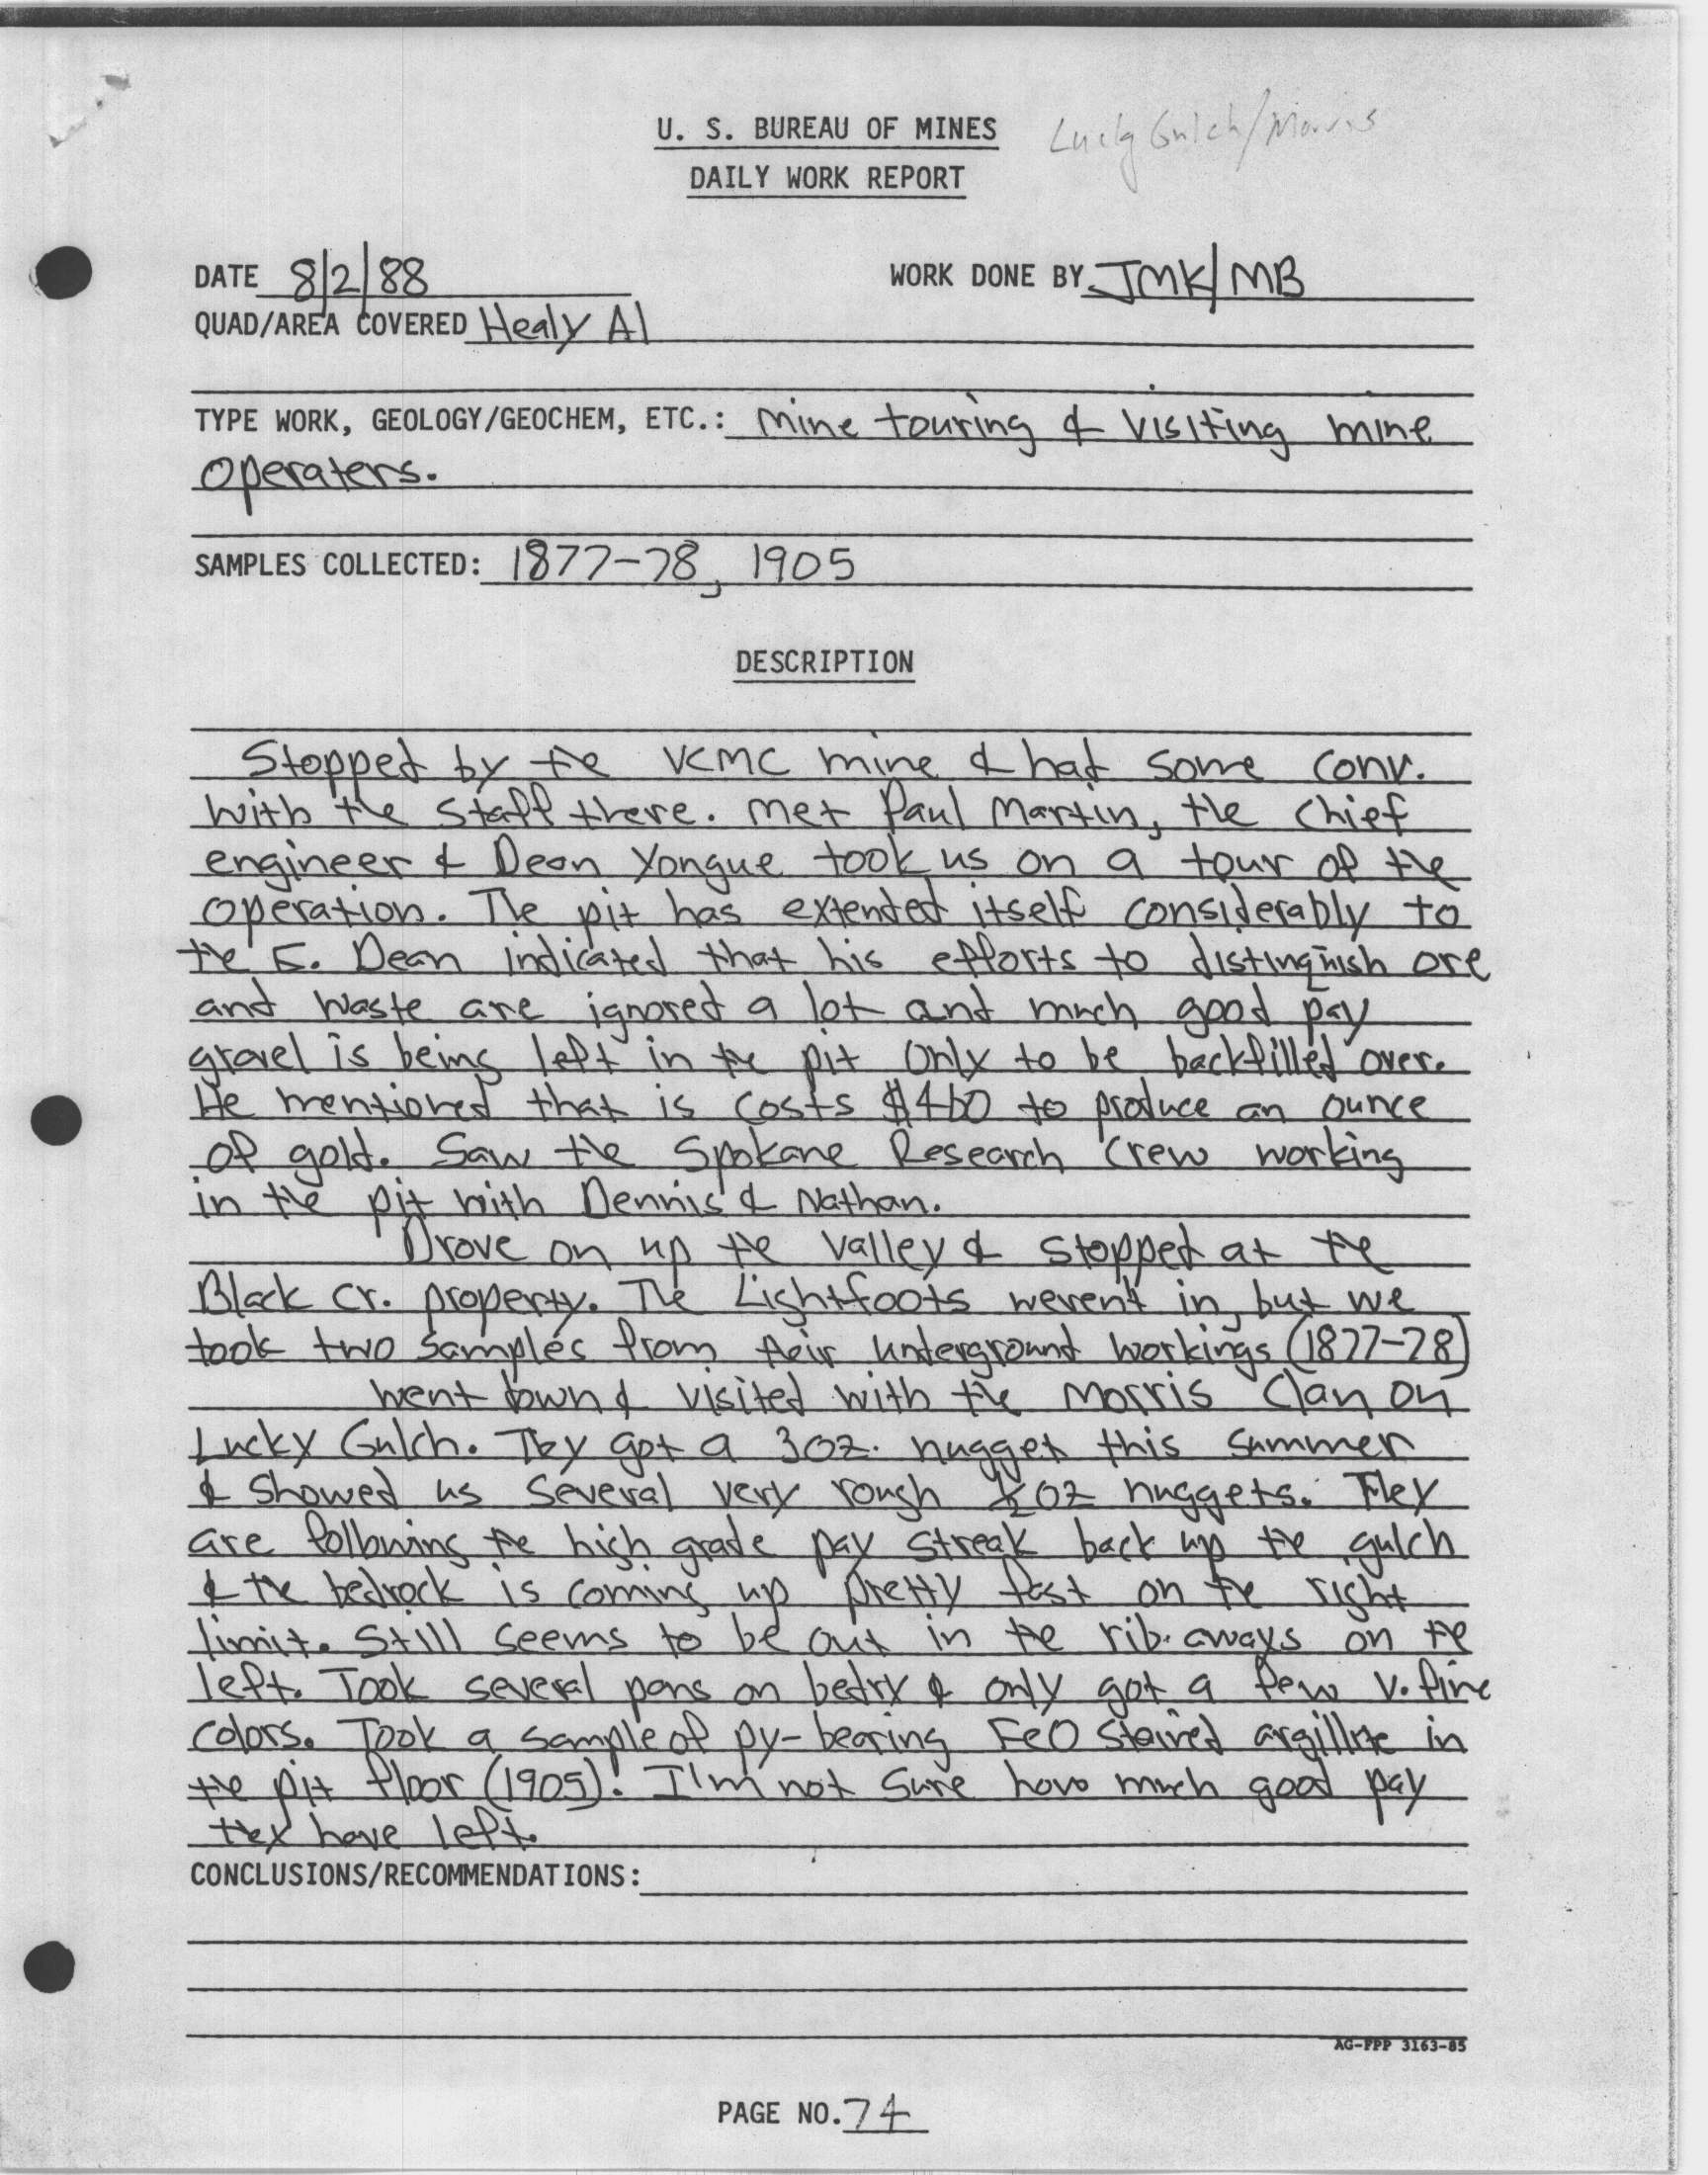 U. S. BUREAU OF MINES
Lucky Gulch/Morris
DAILY WORK REPORT
DATE 8/2/88 WORK DONE BY JMK/MB
QUAD/AREA COVERED Healy A1
TYPE WORK, GEOLOGY/GEOCHEM, ETC.: Mine touring & visiting mine
operaters.
SAMPLES COLLECTED: 1877-78, 1905
DESCRIPTION
Stopped by the VCMC mine & had some conv.
with the staff there. Met Paul Martin, the chief
engineer & Dean Yongue took us on a tour of the
operation. The pit has extended itself considerably to
the E. Dean indicated that his efforts to distinquish ore
and waste are ignored a lot and much good pay
gravel is being left in the pit only to be backfilled over.
He mentioned that is costs $460 to produce an ounce
of gold. Saw the Spokane Research crew working
in the pit with Dennis & Nathan.
Drove on up the valley & stopped at the
Black Cr. property. The Lightfoots weren't in, but we
took two samples from their underground workings (1877-78)
Went down & visited with the Morris Clan on
Lucky Gulch. They got a 3oz. nugget this summer
& showed us several very rough ½ oz nuggets. They
are following the high grade pay streak back up the gulch
& the bedrock is coming up pretty fast on the right
limit. Still seems to be out in the rib aways on the
left. Took several pans on bedrx & only got a few v. fine
colors. Took a sample of py-bearing FeO stained argillite in
the pit floor (1905). I'm not sure how much good pay
they have left.
CONCLUSIONS/RECOMMENDATIONS:
AG-FPP 3163-85
PAGE NO. 74